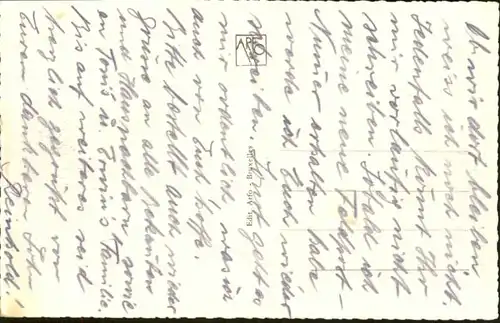 Ob wir dort bleiben
weiss ich noch nicht.
Jedenfalls könnt Ihr
mir vorläufig nicht
schreiben. Sobald ich
meine neue Feldpost-
Numer erhalten habe
werde ich Euch wieder
schreiben. Sonst geht es
mir ordentlich, was ich
auch von Euch hoffe.
Bitte bestellt auch wieder
Grüsse an alle Bekannten
und Hausnachbarn sowie
an Toni's u. Familie.
Bis auf weiteres seid
herzlich gegrüsst von
Eurem dankbaren Sohn
Reinhold!
ARFO
Edit. Arfo - Bruxelles